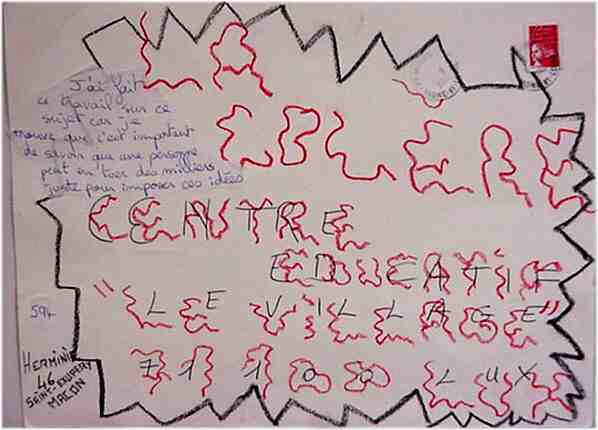 LA
EPLERE
J'ai fait
ce travail sur ce
sujet car je
trouve que c'est important
de savoir que une personne
peut en tuer des milliers
juste pour imposer ces idées
CENTRE
EDUCATIF
"LE VILLAGE"
71100 LUX
594
HERMINIE
46
SAINT EXUPERY
MACON